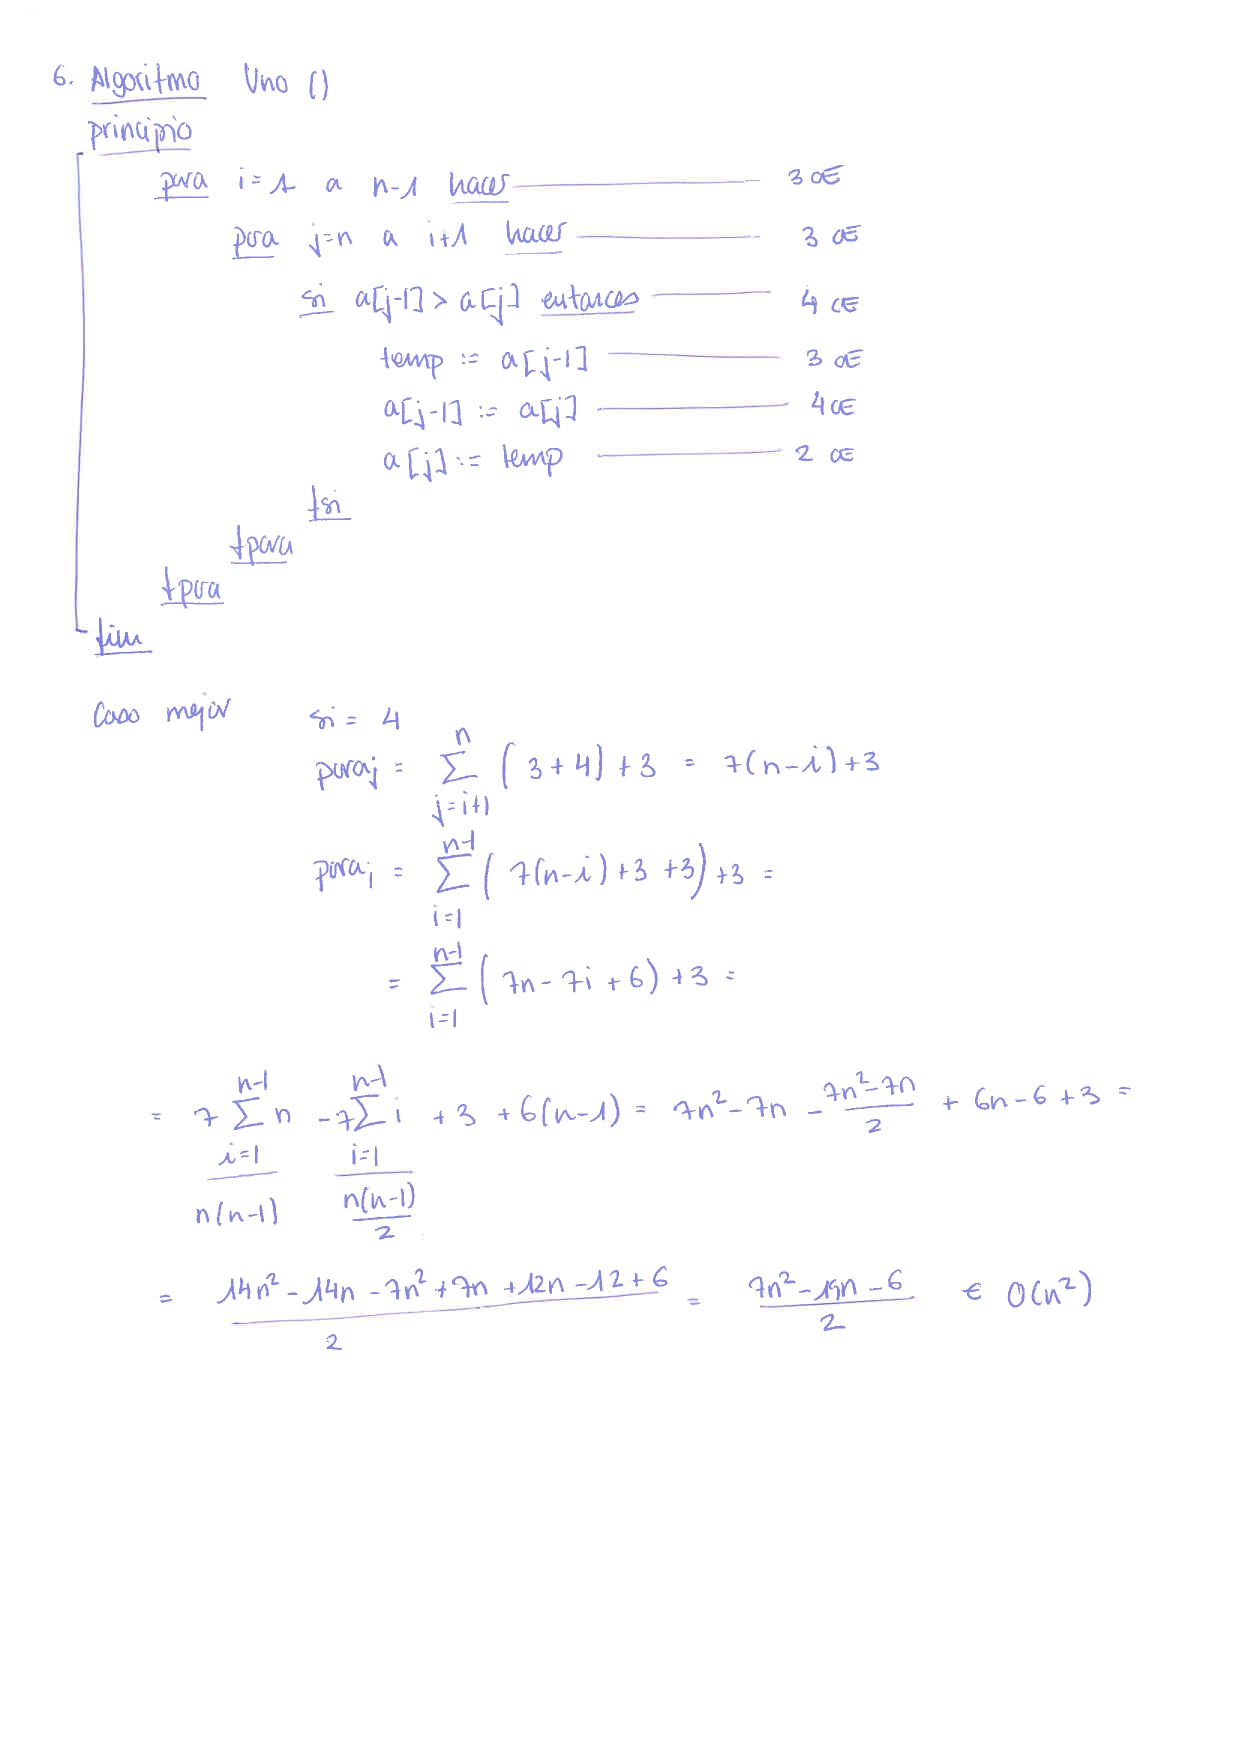 6. Algoritmo Uno ()
principio
para i=1 a n-1 hacer 3 OE
para j=n a i+1 hacer 3 OE
si a[j-1] > a[j] entonces 4 OE
temp := a[j-1] 3 OE
a[j-1] := a[j] 4 OE
a[j] := temp 2 OE
fsi
fpara
fpara
fin
Caso mejor si = 4
para j = ∑_{j=i+1}^{n} (3+4)+3 = 7(n-i)+3
para i = ∑_{i=1}^{n-1} (7(n-i)+3+3)+3 =
= ∑_{i=1}^{n-1} (7n-7i+6)+3 =
= 7 ∑_{i=1}^{n-1} n - 7 ∑_{i=1}^{n-1} i + 3 + 6(n-1) = 7n²-7n - (7n²-7n)/2 + 6n-6+3 =
n(n-1) n(n-1)/2
= (14n²-14n-7n²+7n+12n-12+6)/2 = (7n² - n - 6)/2 ∈ O(n²)